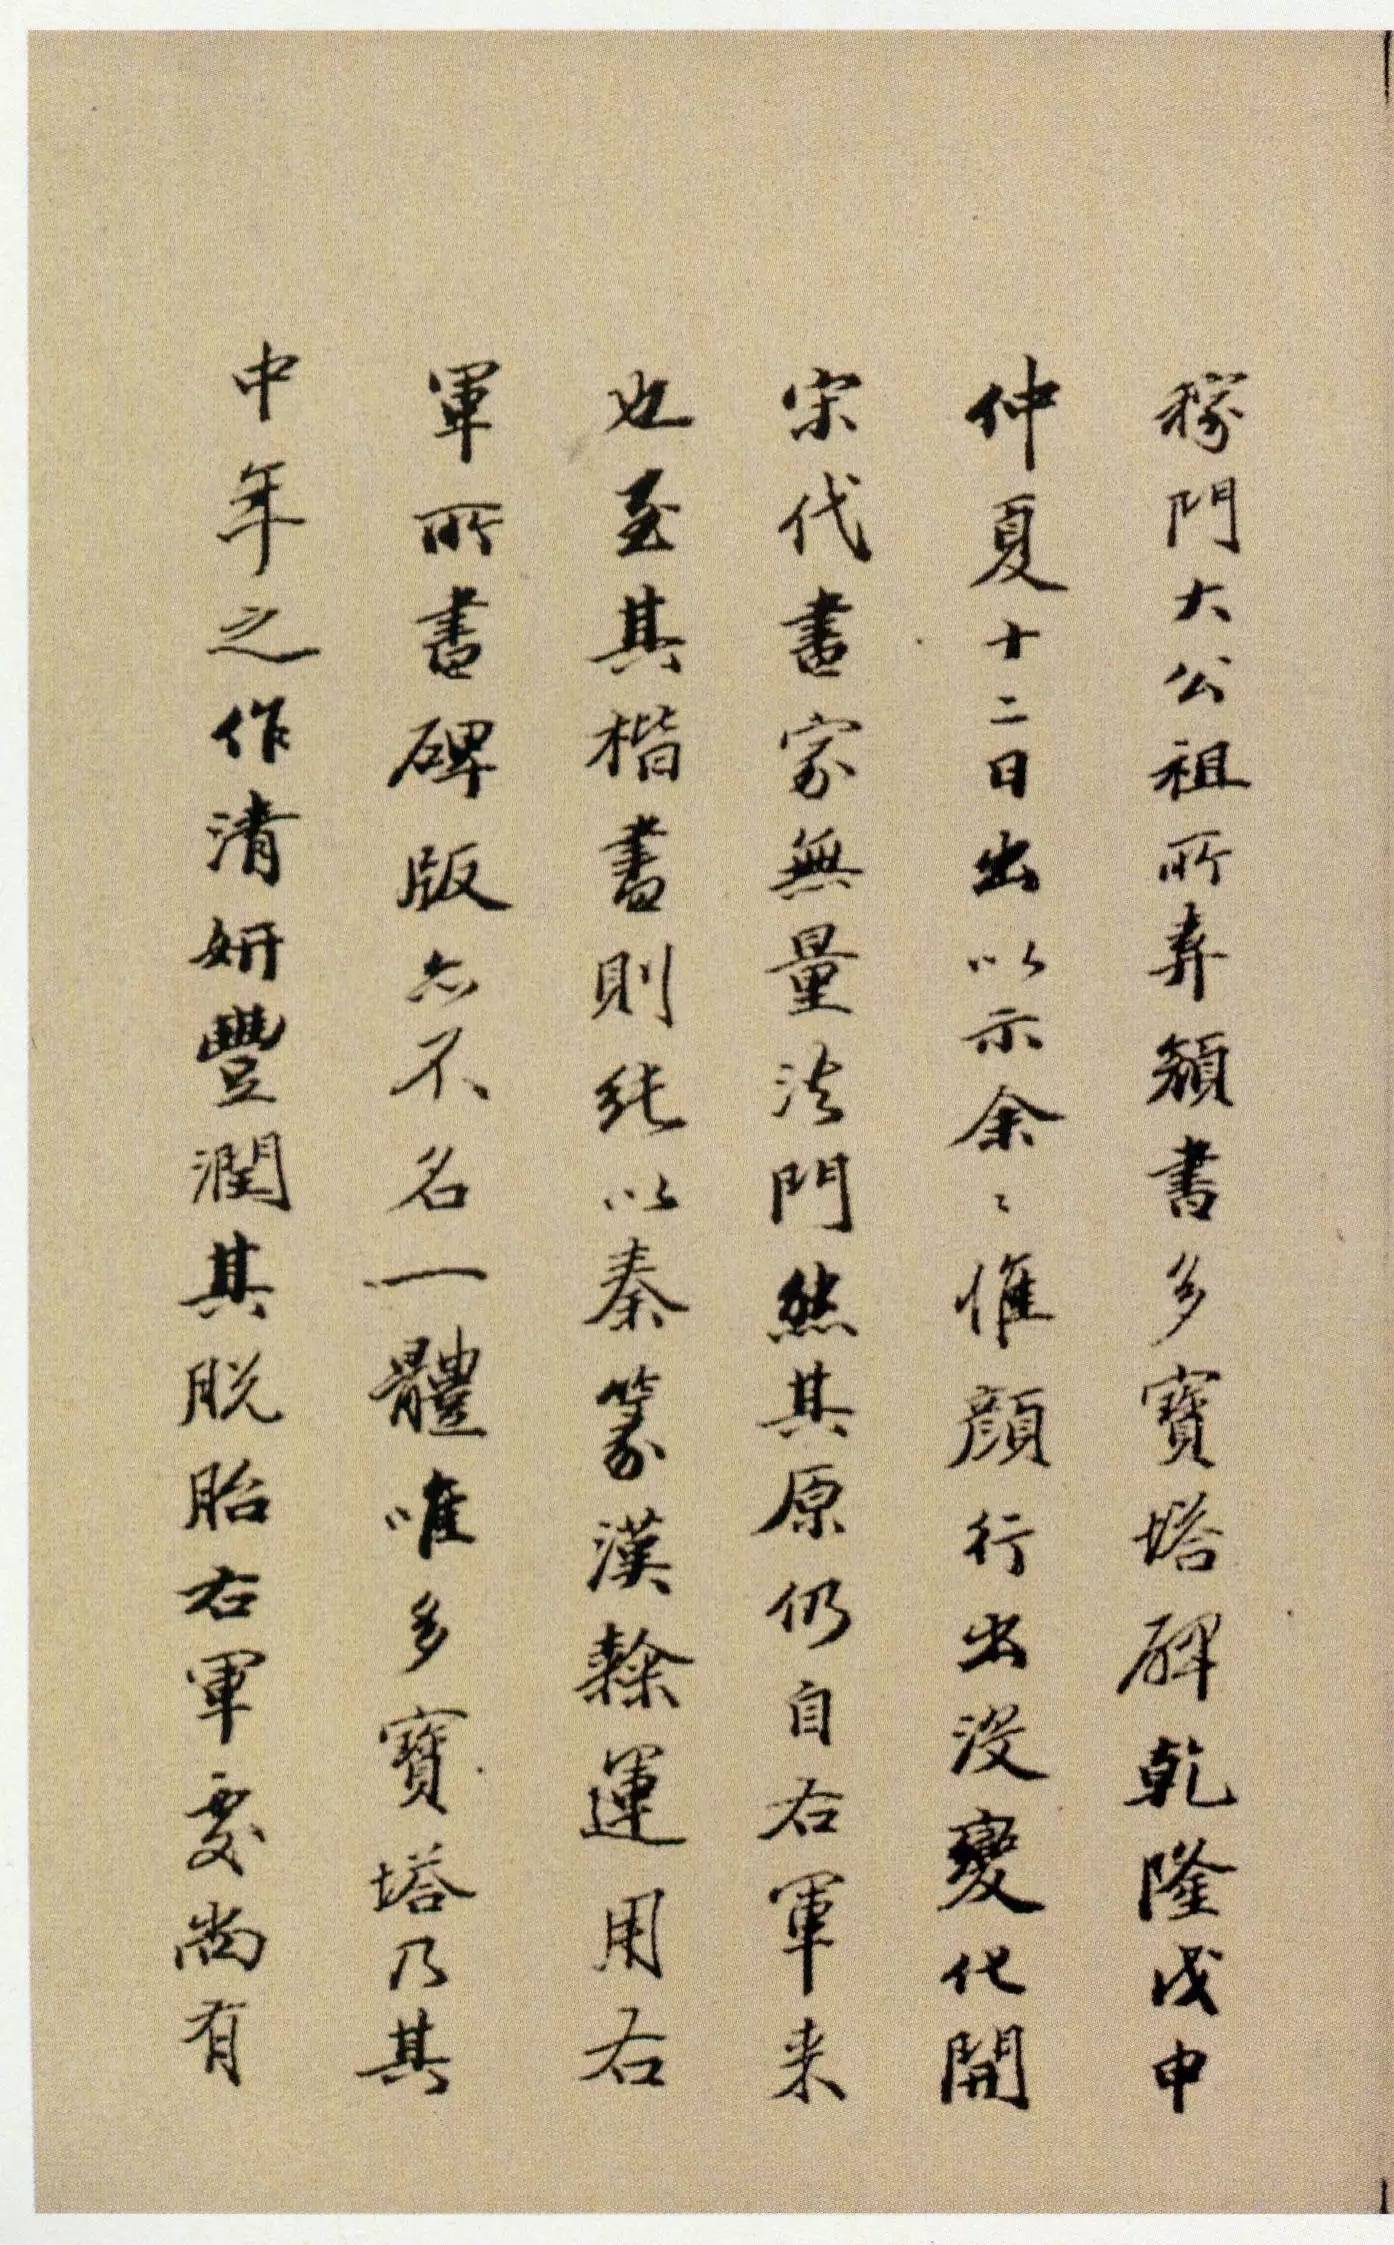 稼門大公祖所弆顏書多寶塔碑乾隆戊申
仲夏十二日出以示余〻惟顏行出沒變化開
宋代書家無量法門然其原仍自右軍来
也至其楷書則純以秦篆漢隸運用右
軍所書碑版亦不名一體唯多寶塔乃其
中年之作清妍豐潤其脫胎右軍處尚有